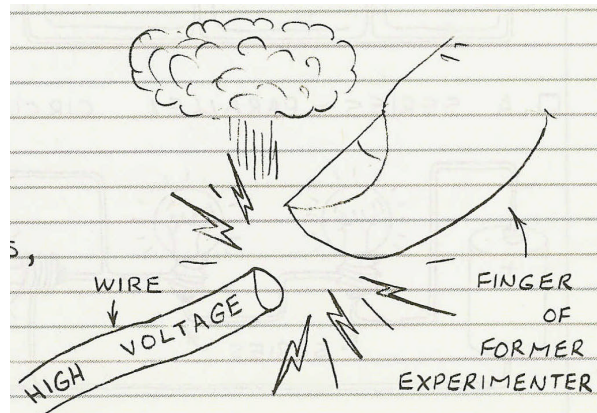 s,
WIRE
HIGH VOLTAGE
FINGER
OF
FORMER
EXPERIMENTER